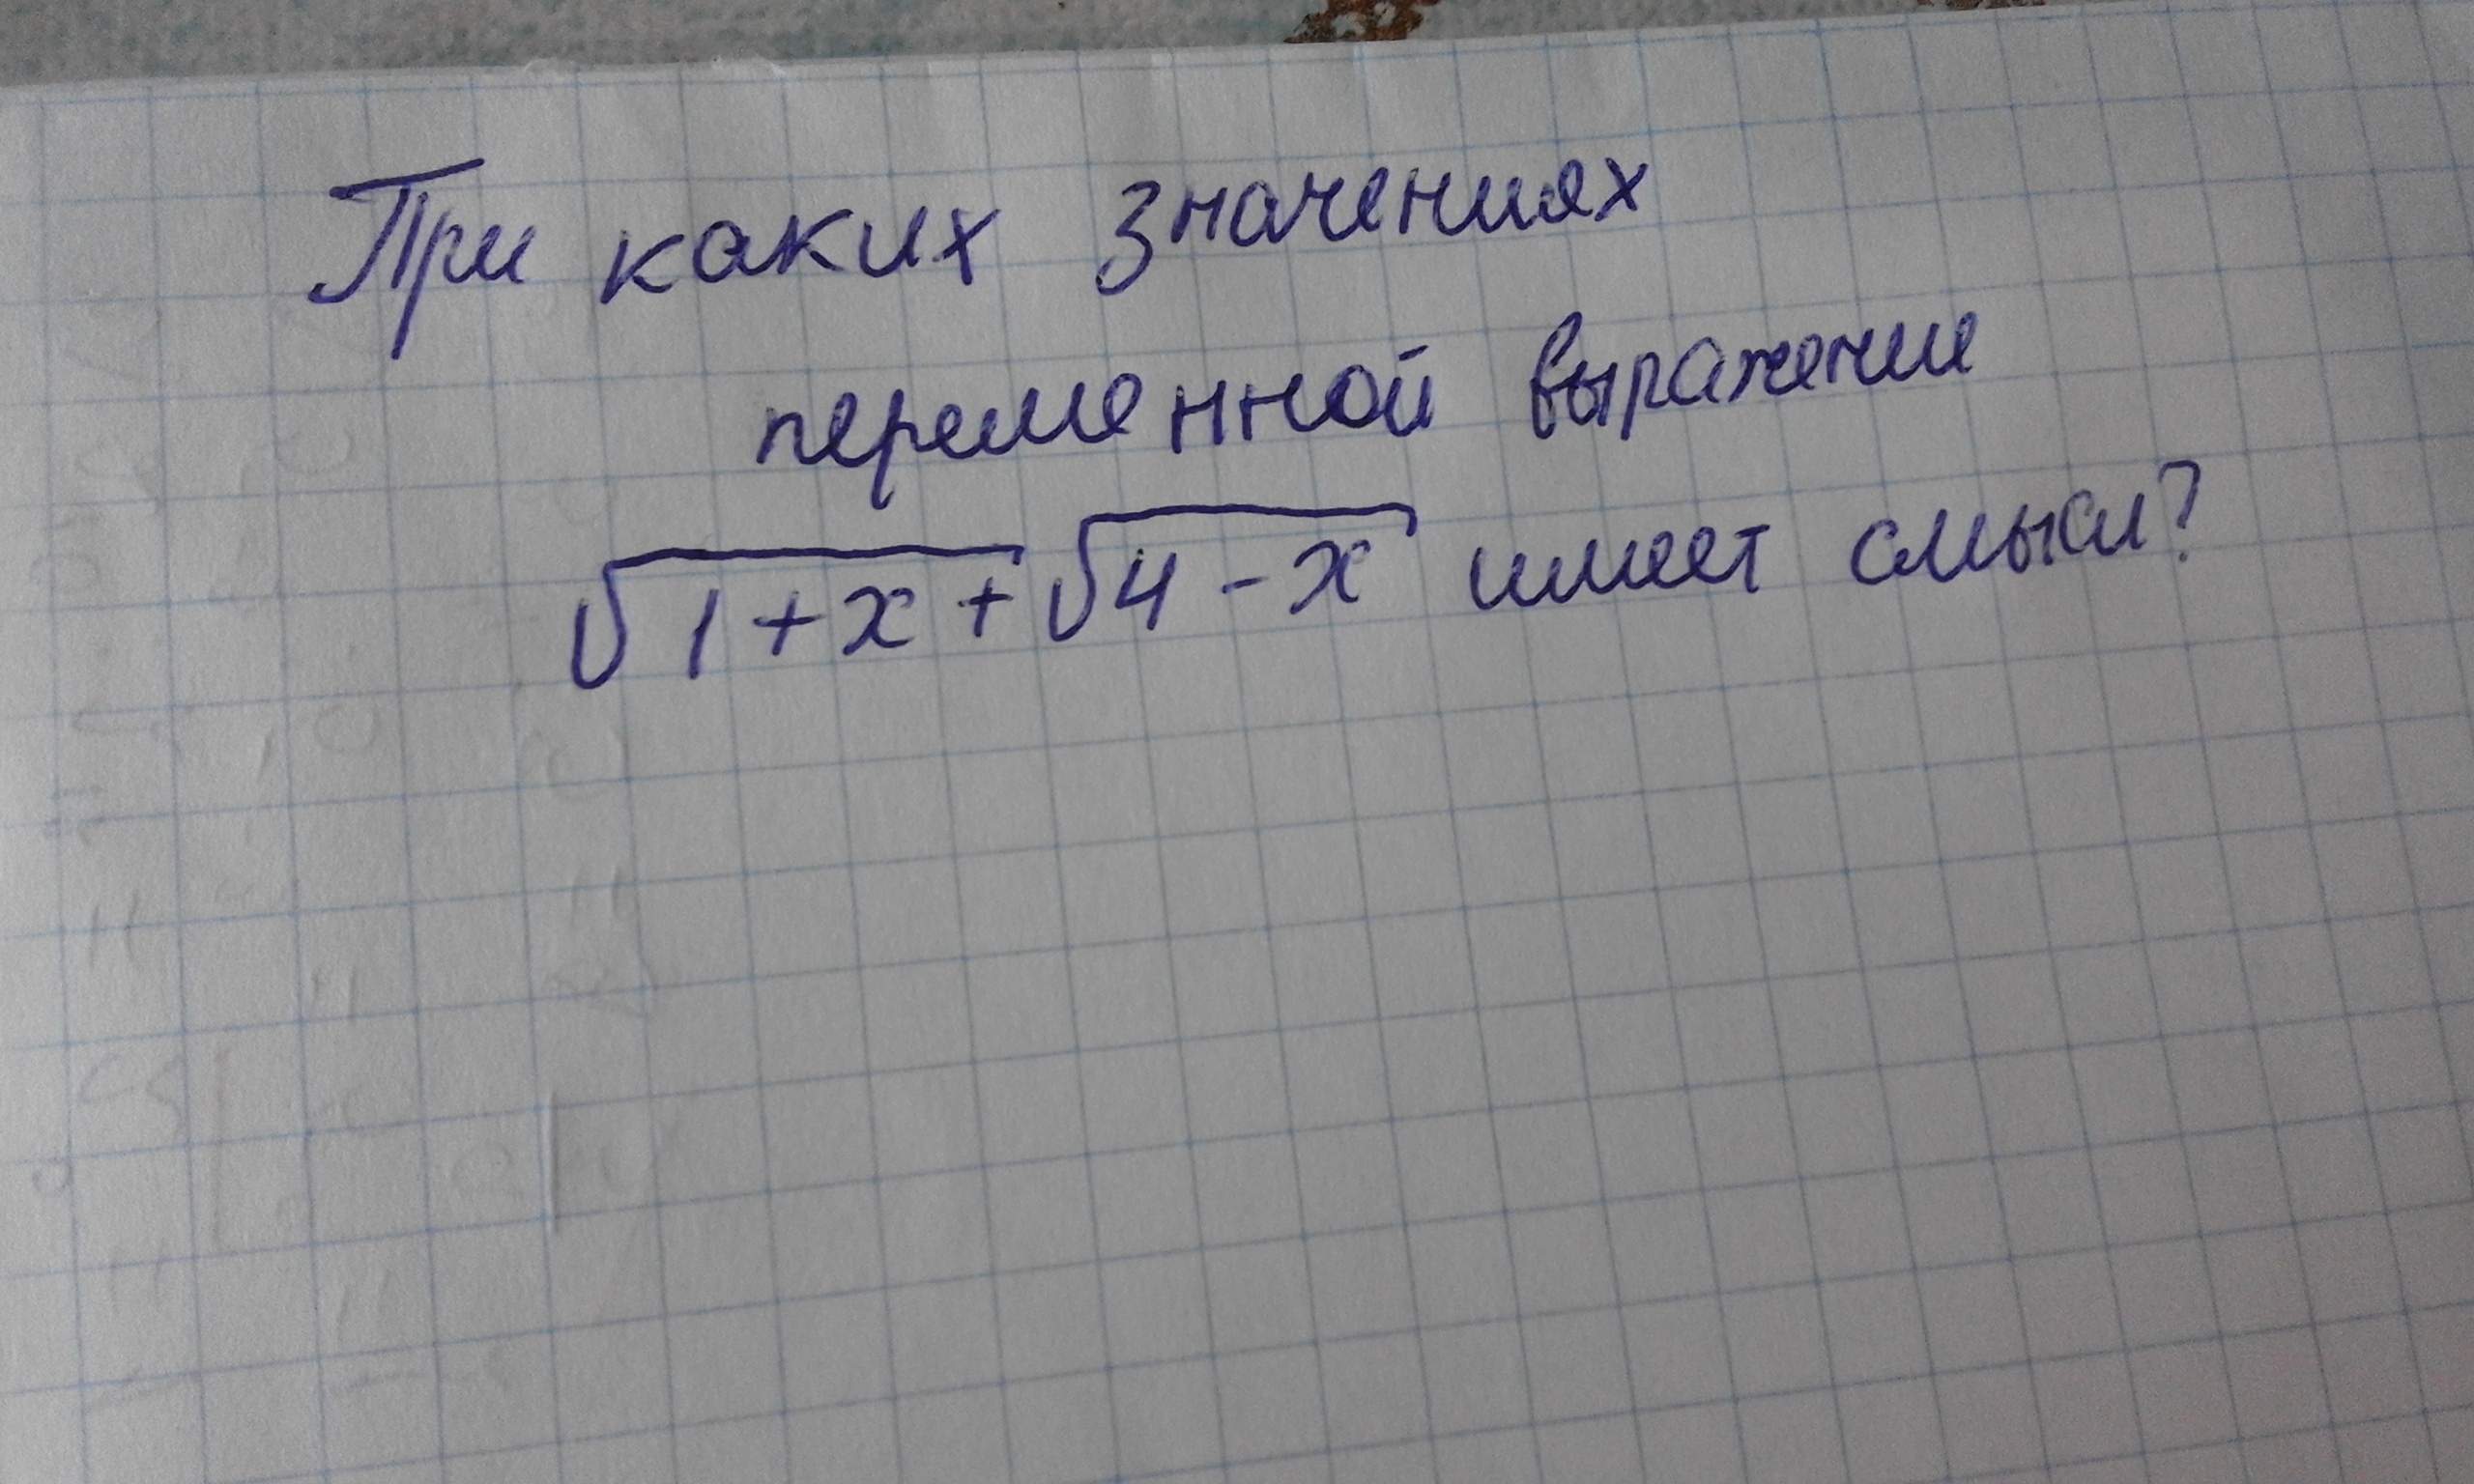 При каких значениях
переменной выражение
√1+x + √4-x имеет смысл?